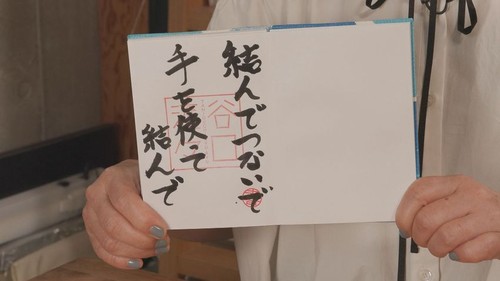 結んでつないで
手を使って
結んで